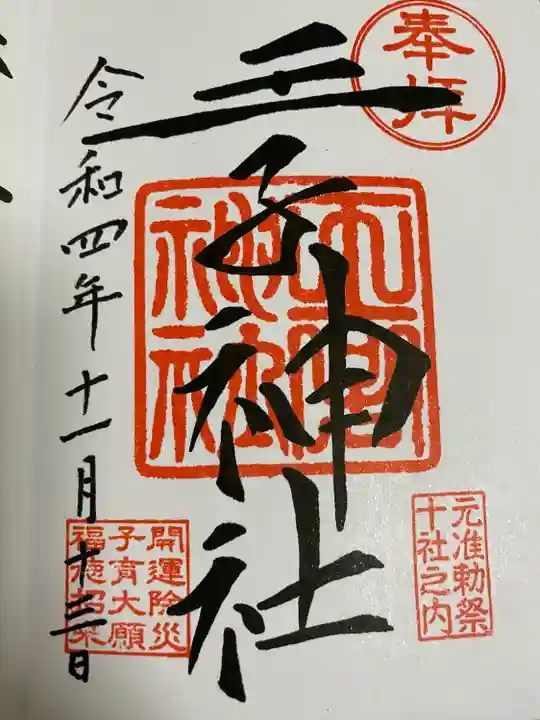 奉拝
王子神社
元准勅祭
十社之内
令和四年十一月十三日
開運除災
子育大願
福徳招来